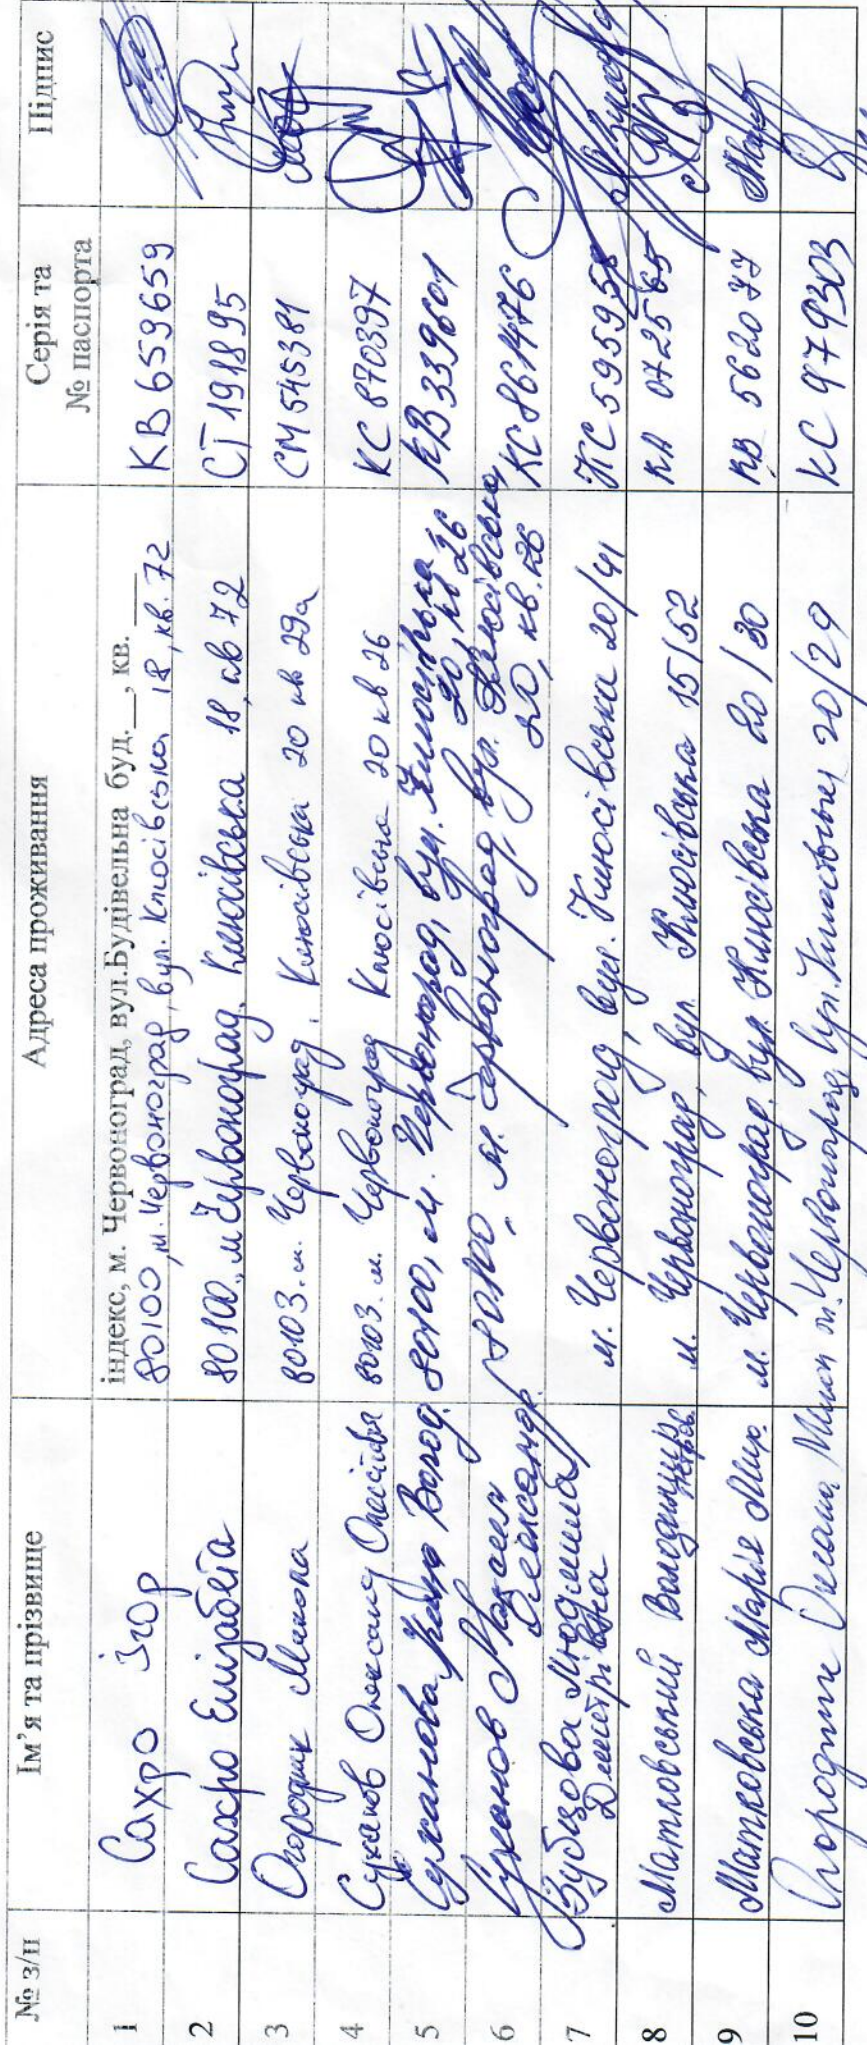 № з/п Ім’я та прізвище Адреса проживання Серія та № паспорта Підпис
індекс, м. Червоноград, вул.Будівельна буд.__, кв. __
1 Сахро Ігор 80100, м. Червоноград, вул. Клюсівська 18, кв. 72 КВ 659659
2 Сахро Елізабета 80100, м Червоноград, Клюсівська 18, кв 72 СТ 191895
3 Огородник Микола 80103. м. Червоноград, Клюсівська 20 кв 29а СМ 545381
4 Суханов Олександр 80103. м. Червоноград Клюсівська 20 кв 26 КС 870397
5 Суханова Волод. 80100, м. Червоноград, вул. Клюсівська
20, кв 26 КВ 339601
6 Суханов Максим
Олександр. 80100, м. Червоноград, вул. Клюсівська,
20, кв. 26 КС 861476
7 Людмила
Дмитрівна м. Червоноград, вул. Клюсівська 20/41 КС 595958
8 Матковський Володимир м. Червоноград, вул. Клюсівська 15/52 КА 072565
9 Матковська Марія Мир. м. Червоноград, вул. Клюсівська 20/30 КВ 562077
10 Огородник Оксана м. Червоноград, вул. Клюсівська 20/29 КС 979303